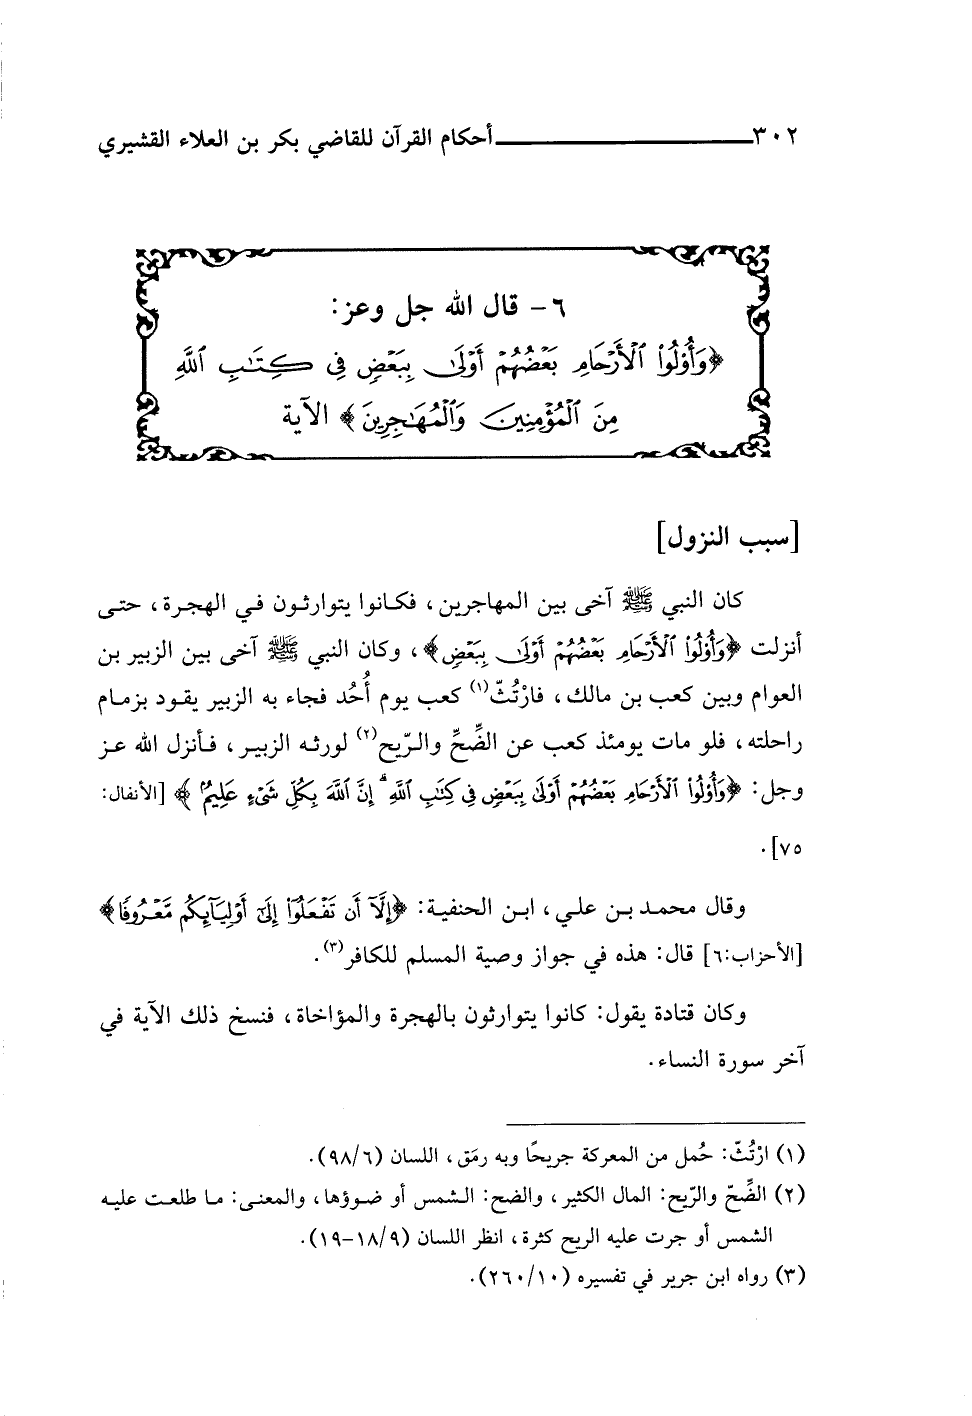 ٣٠٢ أحكام القرآن للقاضي بكر بن العلاء القشيري
٦- قال الله جل وعز:
﴿وَأُوْلُواْ ٱلْأَرْحَامِ بَعْضُهُمْ أَوْلَىٰ بِبَعْضٍ فِي كِتَٰبِ ٱللَّهِ
مِنَ ٱلْمُؤْمِنِينَ وَٱلْمُهَٰجِرِينَ﴾ الآية
[سبب النزول]
كان النبي ﷺ آخى بين المهاجرين، فكانوا يتوارثون في الهجرة، حتى
أنزلت ﴿وَأُوْلُواْ ٱلْأَرْحَامِ بَعْضُهُمْ أَوْلَىٰ بِبَعْضٍ﴾، وكان النبي ﷺ آخى بين الزبير بن
العوام وبين كعب بن مالك، فارْتُثّ(١) كعب يوم أُحُد فجاء به الزبير يقود بزمام
راحلته، فلو مات يومئذ كعب عن الضِّحِّ والرّيح(٢) لورثه الزبير، فأنزل الله عز
وجل: ﴿وَأُوْلُواْ ٱلْأَرْحَامِ بَعْضُهُمْ أَوْلَىٰ بِبَعْضٍ فِي كِتَٰبِ ٱللَّهِ ۗ إِنَّ ٱللَّهَ بِكُلِّ شَيْءٍ عَلِيمٌۢ﴾ [الأنفال:
٧٥].
وقال محمد بن علي، ابن الحنفية: ﴿إِلَّآ أَن تَفْعَلُوٓاْ إِلَىٰٓ أَوْلِيَآئِكُم مَّعْرُوفًا﴾
[الأحزاب:٦] قال: هذه في جواز وصية المسلم للكافر(٣).
وكان قتادة يقول: كانوا يتوارثون بالهجرة والمؤاخاة، فنسخ ذلك الآية في
آخر سورة النساء.
(١) ارْتُثّ: حُمل من المعركة جريحًا وبه رمَق، اللسان (٩٨/٦).
(٢) الضِّحّ والرّيح: المال الكثير، والضح: الشمس أو ضوؤها، والمعنى: ما طلعت عليه
الشمس أو جرت عليه الريح كثرة، انظر اللسان (١٨/٩-١٩).
(٣) رواه ابن جرير في تفسيره (٢٦٠/١٠).